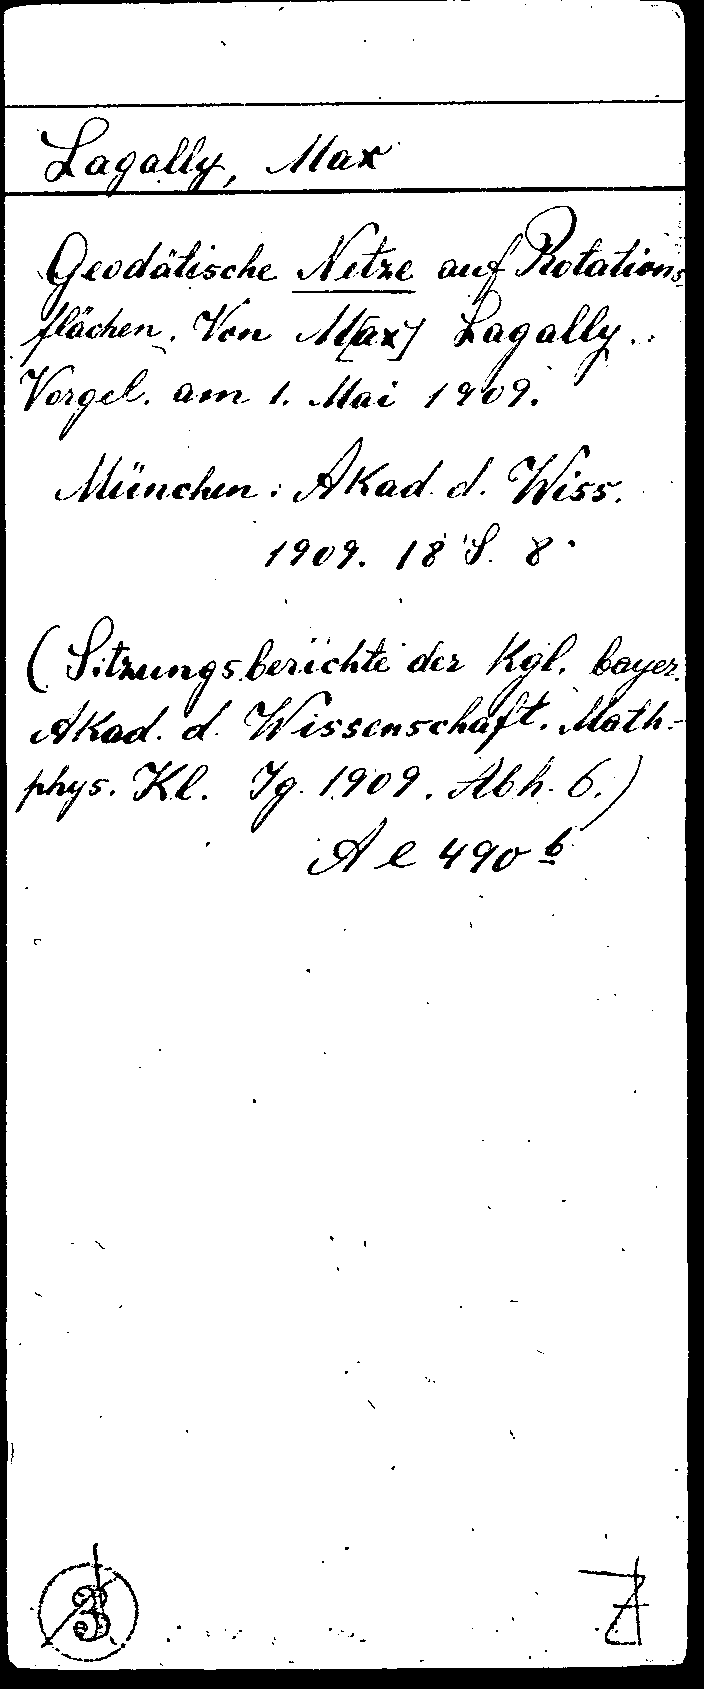 Lagally, Max
Geodätische Netze auf Rotations
flächen. Von M[ax] Lagally.
Vorgel. am 1. Mai 1909.
München: Akad. d. Wiss.
1909. 18 S. 8°
(Sitzungsberichte der Kgl. bayer.
Akad. d. Wissenschaft. Math.-
phys. Kl. Jg. 1909. Abh. 6.)
A e 490 b
3